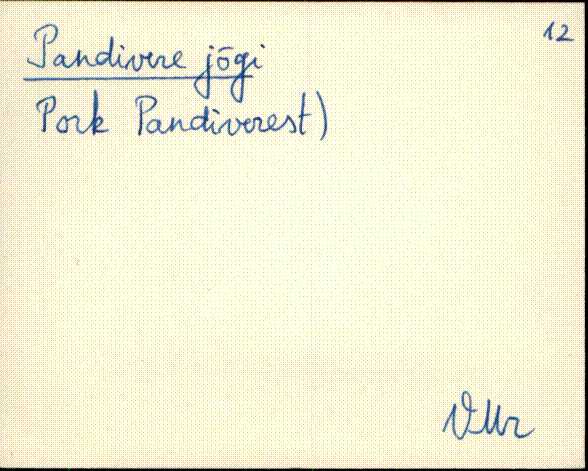 12
Pandivere jõgi
Pork Pandiverest)
VMr